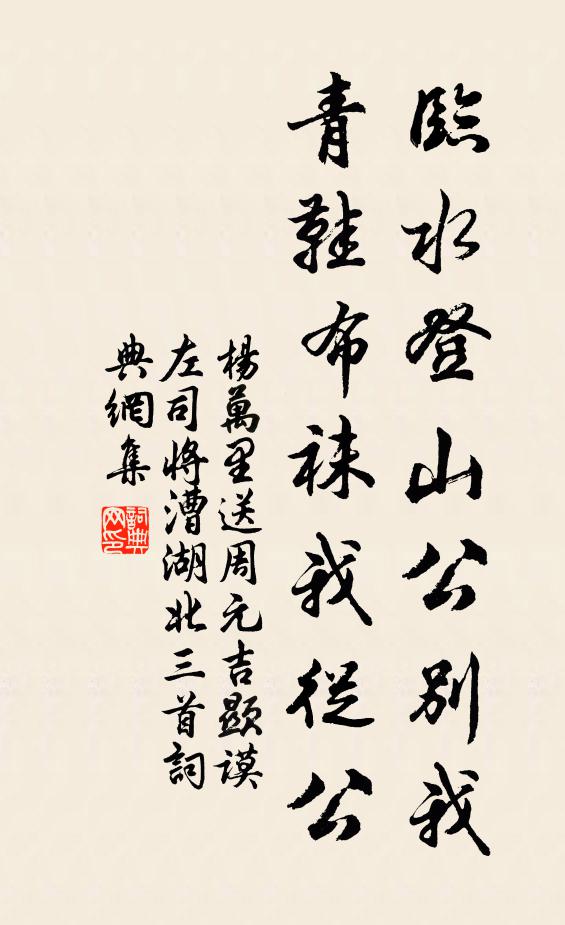 臨水登山公別我
青鞋布袜我從公
楊萬里送周元吉顯謨
左司將漕湖北三首詞
典網集
詞典
网印